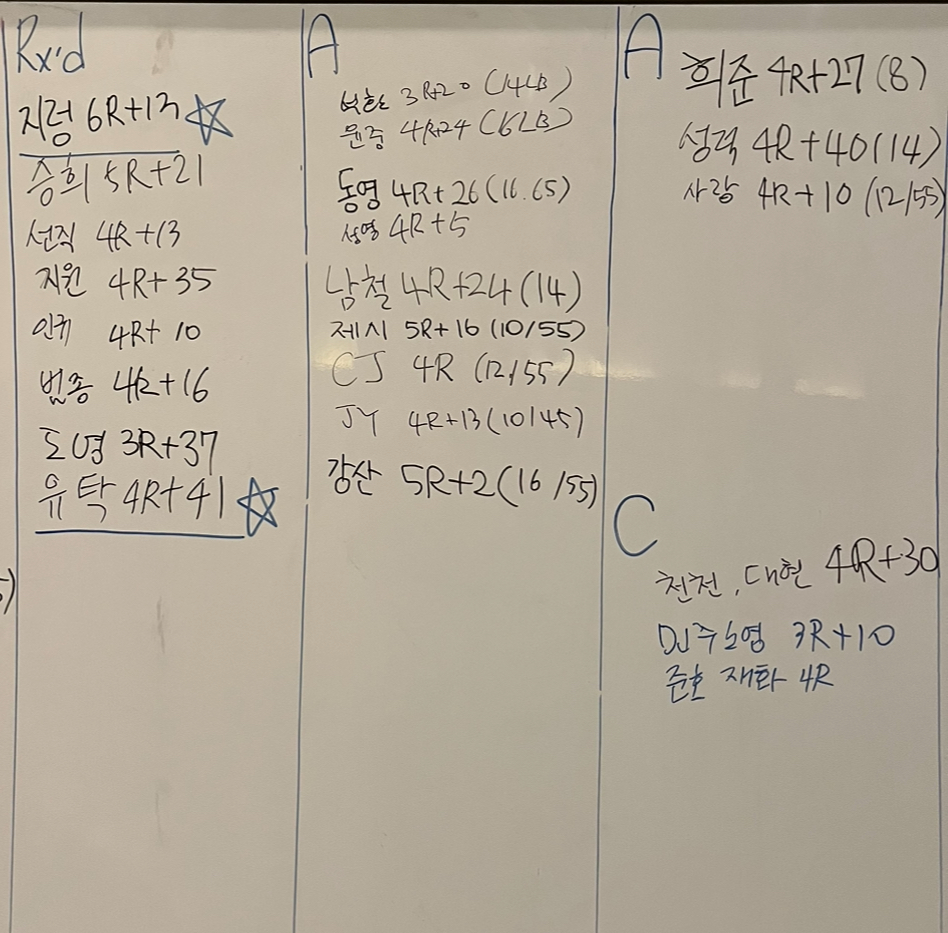 Rx'd
지렁 6R+13
승희 5R+21
선직 4R+13
지원 4R+35
인귀 4R+10
범종 4R+16
도영 3R+37
유탁 4R+41
A
3R+20 (14LB)
윤중 4R+24 (6LB)
동영 4R+26 (16.65)
성영 4R+5
남철 4R+24 (14)
제시 5R+16 (10/55)
CJ 4R (12/55)
JY 4R+13 (10/45)
강산 5R+2 (16/55)
A
희준 4R+27 (8)
성격 4R+40 (14)
사랑 4R+10 (12/55)
C
천천, 대현 4R+30
DJ주노영 3R+10
준호 재화 4R